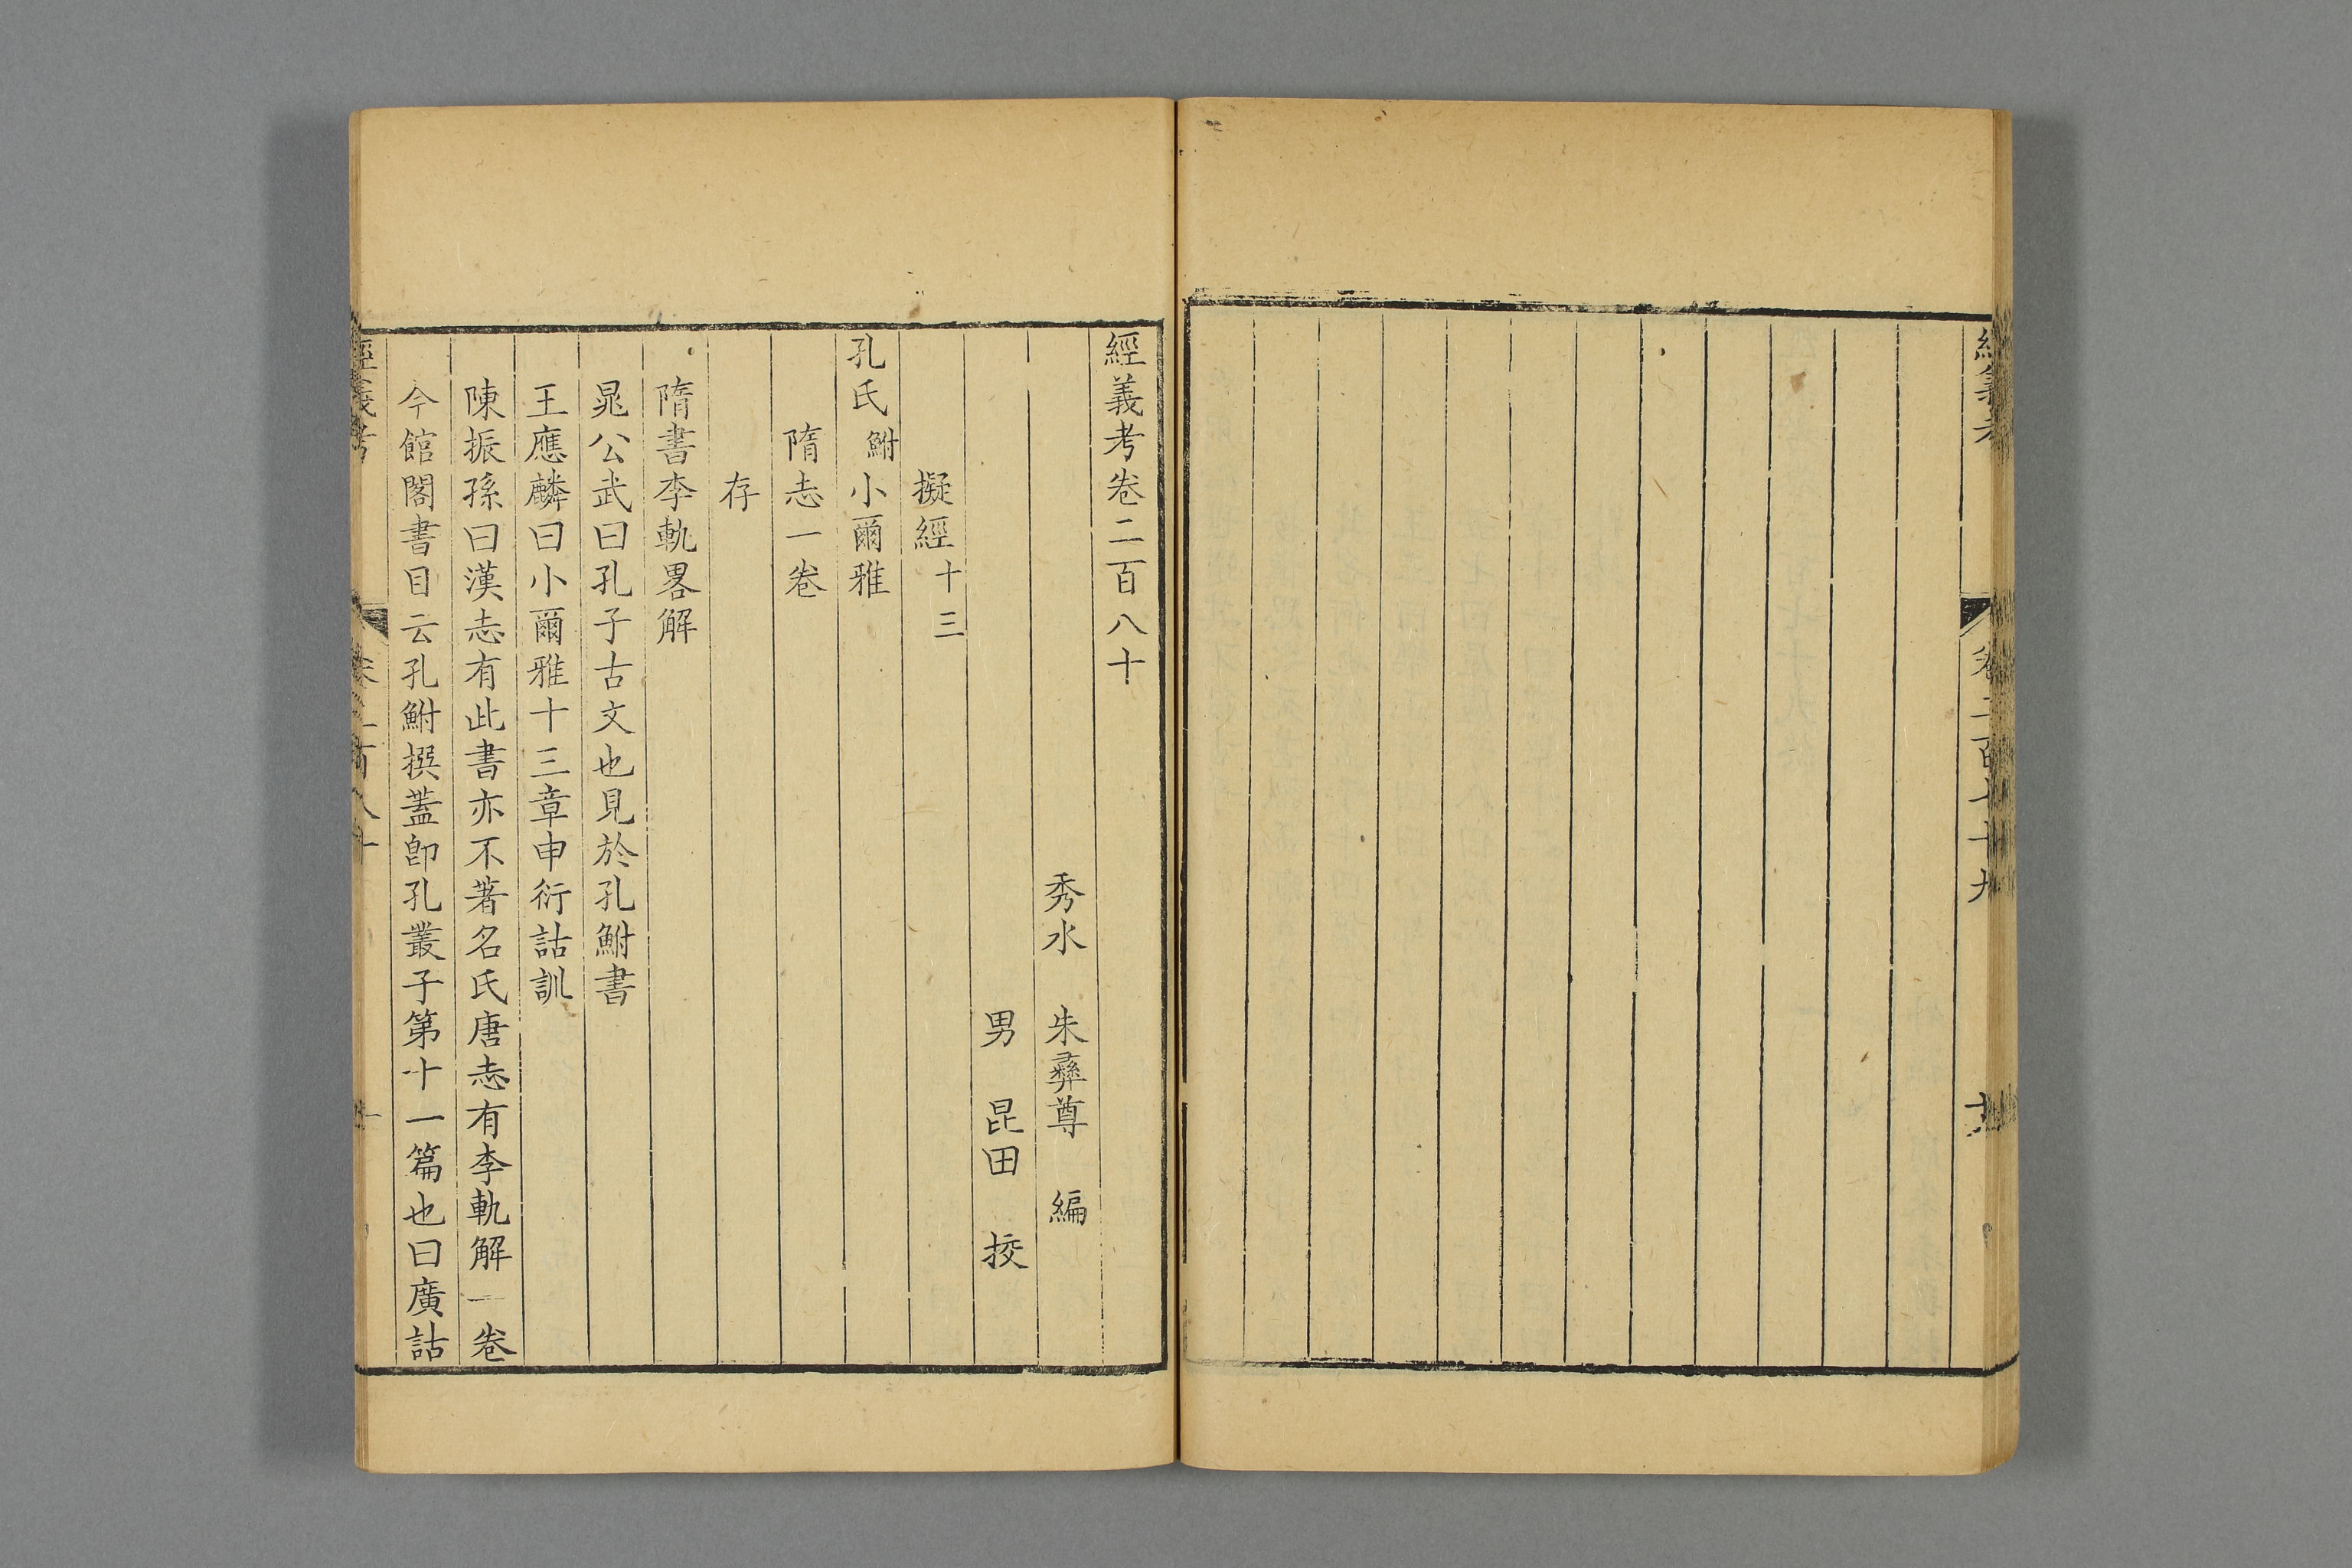 經義考
卷二百七十九
經義考卷二百八十
秀水 朱彝尊 編
男 昆田 挍
擬經十三
孔氏鮒小爾雅
隋志一卷
存
隋書李軌畧解
晁公武曰孔子古文也見於孔鮒書
王應麟曰小爾雅十三章申衍詁訓
陳振孫曰漢志有此書亦不著名氏唐志有李軌解一卷
今館閣書目云孔鮒撰蓋卽孔叢子第十一篇也曰廣詁
經義考